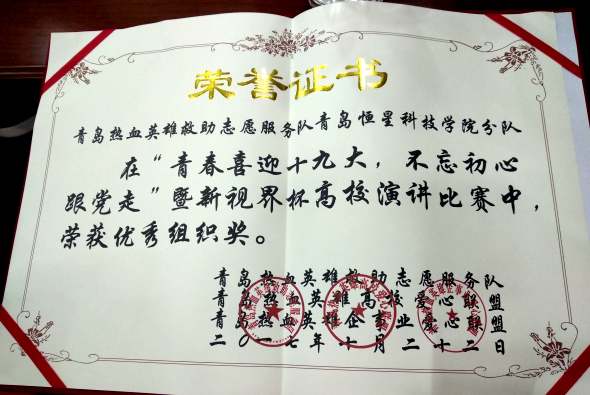 荣誉证书
青岛热血英雄救助志愿服务队青岛恒星科技学院分队
在“青春喜迎十九大，不忘初心
跟党走”暨新视界杯高校演讲比赛中，
荣获优秀组织奖。
青岛热血英雄救助志愿服务队
青岛热血英雄高校爱心联盟
青岛热血英雄企业爱心联盟
二〇一七年十月二十二日